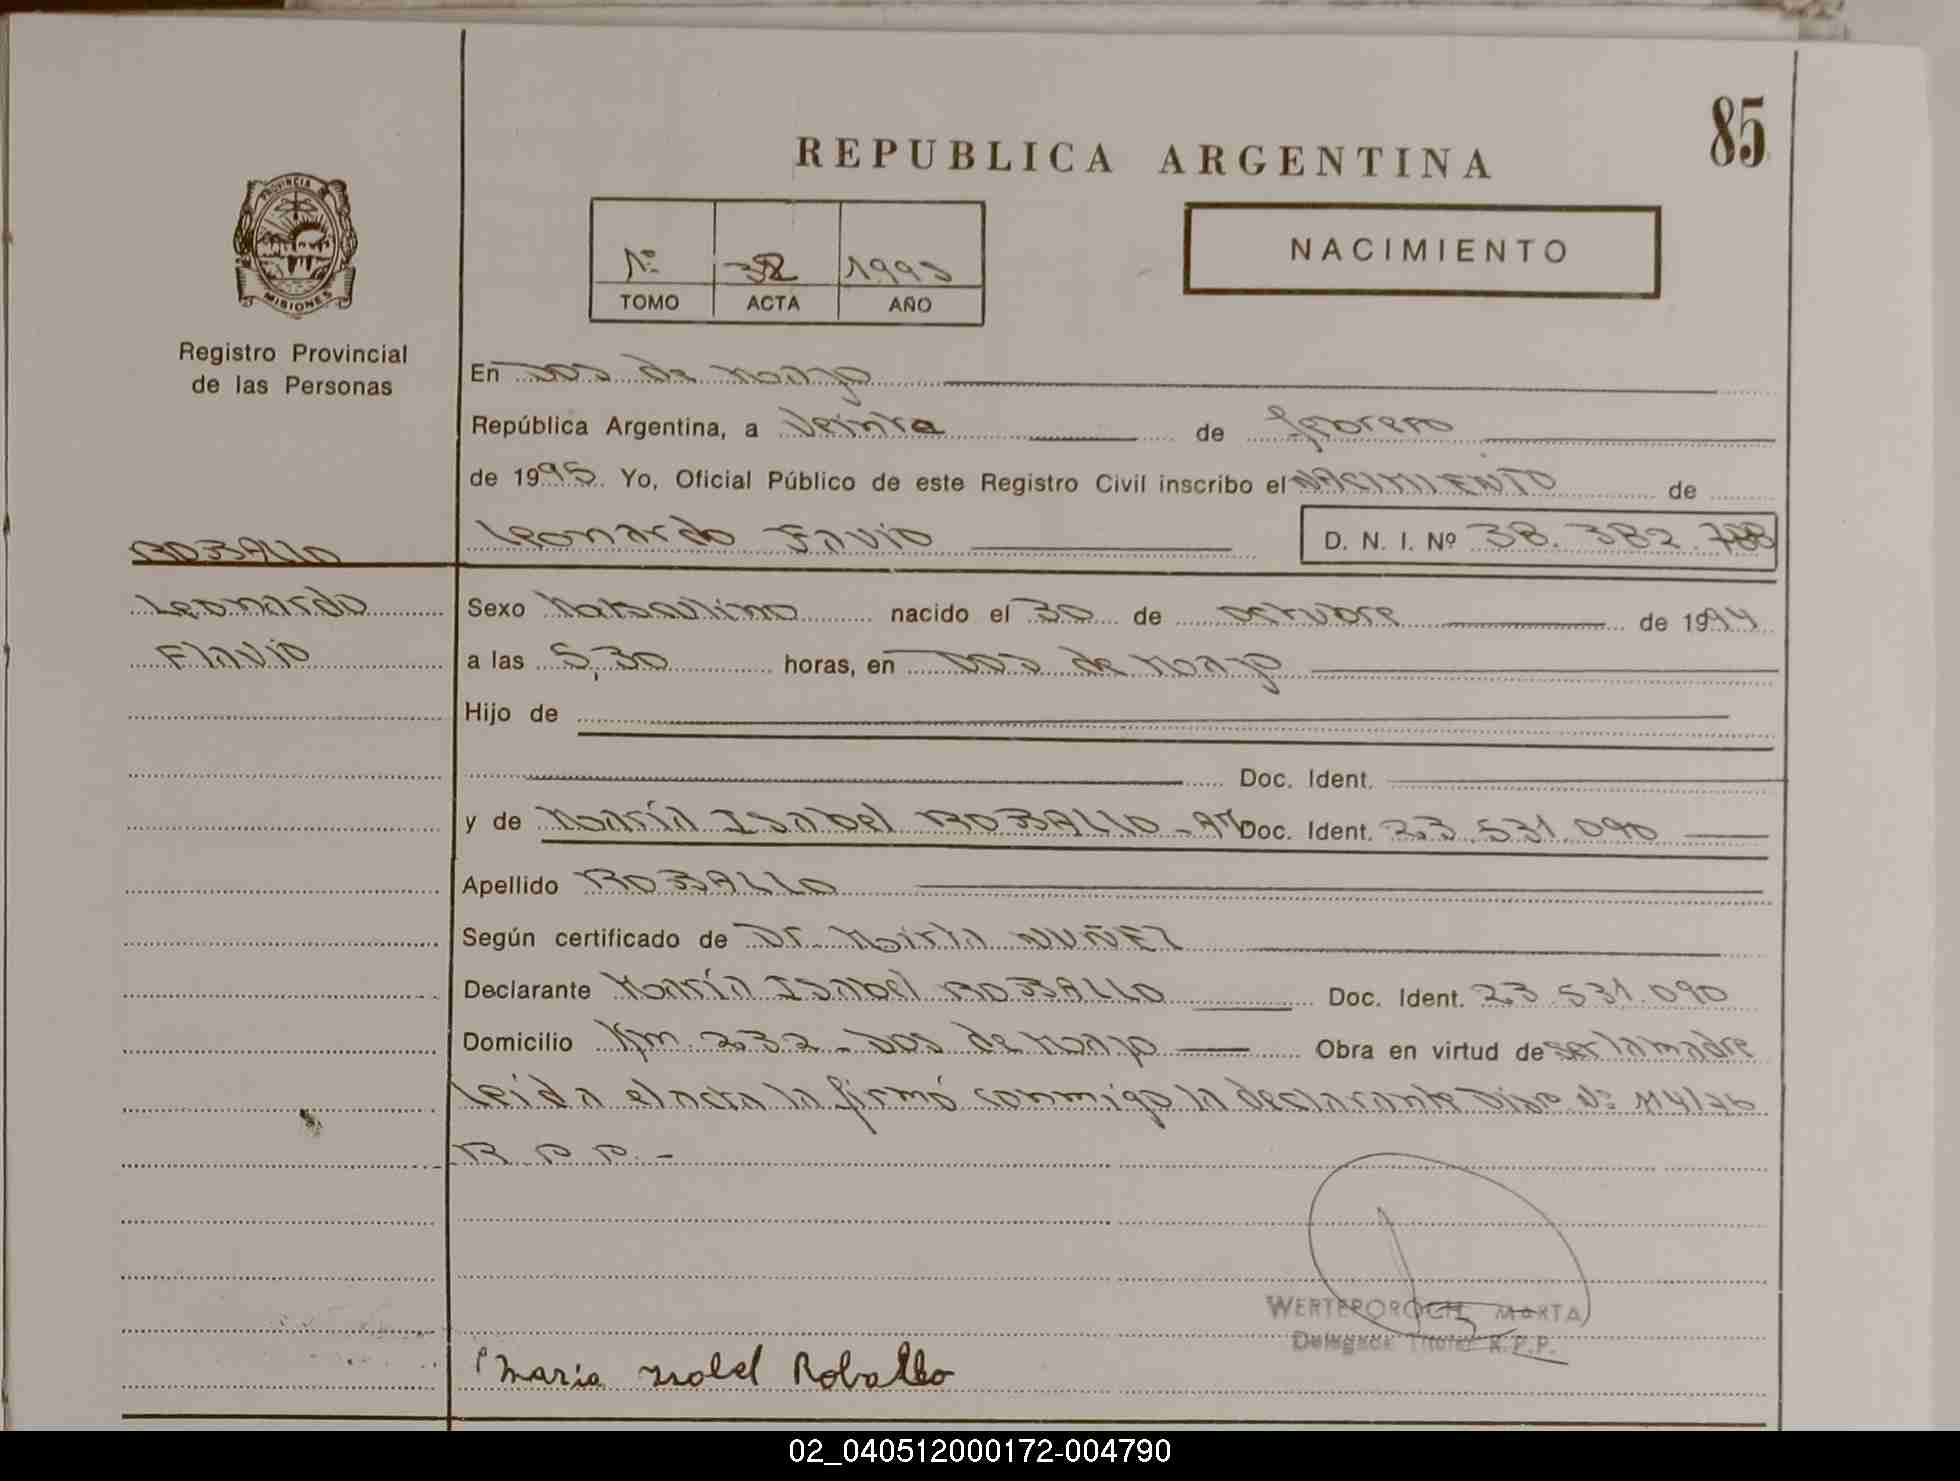 85
REPUBLICA ARGENTINA
PROVINCIA DE
MISIONES
Registro Provincial
de las Personas
Nº 1995
TOMO ACTA AÑO
NACIMIENTO
En Dos de Mayo
República Argentina, a Veinte de febrero
de 1995. Yo, Oficial Público de este Registro Civil inscribo el NACIMIENTO de
Leonardo Favio D. N. I. Nº 38.382.788
ROBALLO
Leonardo
Flavio
Sexo Masculino nacido el 30 de octubre de 1994
a las 5,30 horas, en Dos de Mayo
Hijo de
Doc. Ident.
y de María Isabel ROBALLO - Doc. Ident. 23.531.090
Apellido ROBALLO
Según certificado de Dr. Mirta NUÑEZ
Declarante María Isabel ROBALLO Doc. Ident. 23.531.090
Domicilio Km. 232 - Dos de Mayo Obra en virtud de ser la madre
Leida el acta la firmó conmigo la declarante Disp. Nº 114/76
R. P. P. -
WERTEROROCH, MARTA
Delegada Titular R.P.P.
Maria Isabel Roballo
02_040512000172-004790